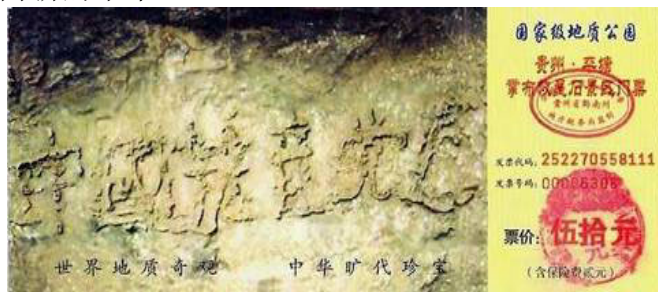 中國共产党亡
世界地质奇观 中华旷代珍宝
国家级地质公园
贵州·平塘
掌布藏字石景区门票
贵州省黔南州
发票代码: 252270558111
发票号码: 00006308
票价: 伍拾元
(含保险费贰元)